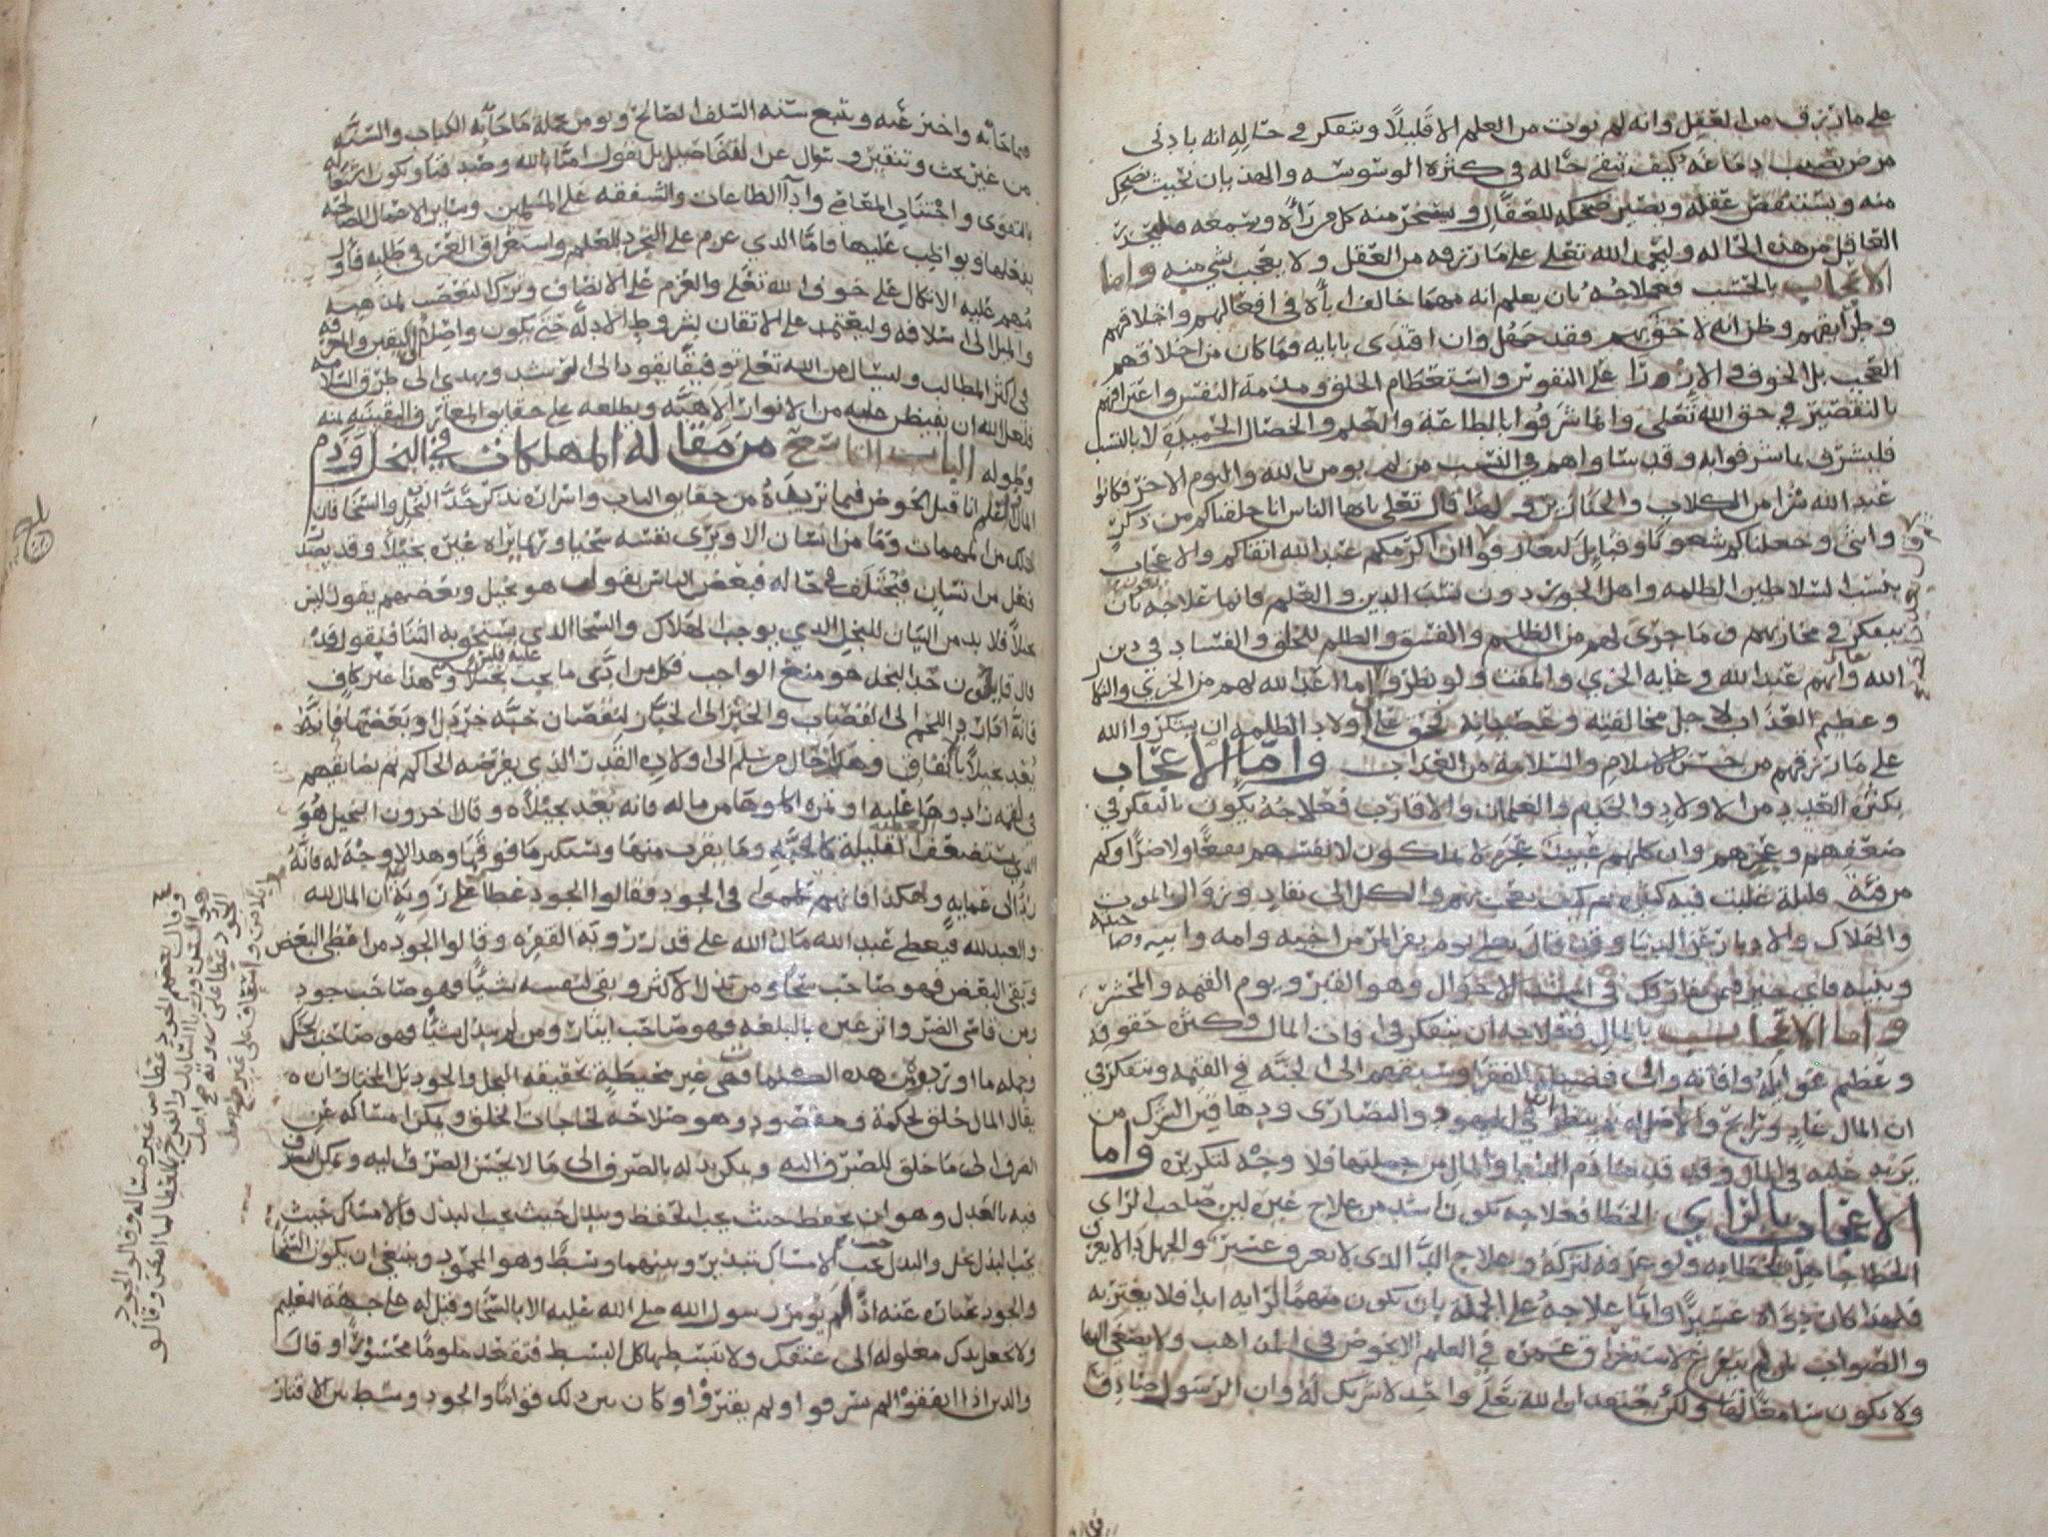 على ما رزق من العقل وانه لم يوت من العلم الا قليلا ويتفكر في حاله انه بادنى
مرض يصيب دماغه كيف تبقى حاله في كثرة الوسوسه والهذيان بحيث يضحك
منه ويستنقص عقله ويصير ضحكه للعقال ويسخر منه كل من رآه ويسمعه
العاقل من هذه الحاله وليحمد الله تعلى على ما رزقه من العقل ولا يعجب بشي منه واما
الاعجاب بالحسب فعلاجه بان يعلم انه مهما خالف اباه في افعالهم واخلاقهم
وطرايقهم وظن انه لاحق بهم فقد جهل وان اقتدى بابايه فما كان من اخلاقهم
العجب بل الخوف والازورا على النفوس واستعظام الخلق ومذمة النفس واعترافهم
بالتقصير في حق الله تعلى وانما شرفوا بالطاعة والعلم والخصال الحميده لا بالنسب
فليشرف بما شرفوا به وقد ساواهم في النسب من لم يومن بالله واليوم الاخر فكانوا
عند الله شرا من الكلاب والخنازير ولهذا قال تعلى يا ايها الناس انا خلقناكم من ذكر
وانثى وجعلناكم شعوبا وقبايل لتعارفوا ان اكرمكم عند الله اتقاكم والاعجاب
بنسب السلاطين الظلمه واهل الجور دون نسب الدين والعلم فانما علاجه بان
يتفكر في مخازيهم وما جرى لهم من الظلم والفسق والظلم للخلق والفساد في دين
الله وانهم عند الله في غايه الخزي والمقت ولو نظروا ما اعد الله لهم من الخزي والنكال
وعظيم العذاب لاجل مخالفته وعصيانه لحق على اولاد الظلمه ان يشكروا الله
على ما رزقهم من حسن الاسلام والسلامه من العذاب واما الاعجاب
بكثره العدد من الاولاد والخدم والغلمان والاقارب فعلاجه يكون بالتفكر في
ضعفهم وعجزهم وان كلهم عبيد عجزه لا يملكون لانفسهم نفعا ولا ضرا وكم
من فئة قليلة غلبت فيه كثيره ثم كيف يعجب بهم والكل الى نفاد وزوال والموت
والهلاك والادبار عن الدنيا وقد قال تعلى يوم يفر المر من اخيه وامه وابيه وصاحبته
وبنيه فاي خير فيمن يفارقك في اشد الاحوال وهو القبر ويوم القيمه والمحشر
واما الاعجاب بالمال فعلاجه ان يتفكر في افات المال وكثره حقوقه
وعظيم غوايله وافاته والى فضيلة الفقرا وسبقهم الى الجنة في القيمه ويتفكر في
ان المال غاد ورايح ولا اصل له ثم ينظر الى اليهود والنصارى
يزيد عليه في المال وقد قدمنا ذم الدنيا والمال من جملتها فلا وجه لتكريره واما
الاعجاب بالراي الخطا فعلاجه يكون اشد من علاج غيره لان صاحب الراي
الخطا جاهل بخطايه ولو عرفه لتركه وعلاج الدا الذي لا يعرف عسير والجهل دا لا يعرف
فلهذا كان دواه عسيرا وانما علاجه على الجمله بان يكون متهما لرايه ابدا فلا يغتر به
والصواب لمن لم يتفرغ لاستغراق عمره في العلم الا يخوض في المذاهب ولا يصغي اليها
ولا يكون سامعا لها ولكن يعتقد ان الله تعلى واحد لا شريك له وان الرسول صادق
فيما جا به واخبر عنه ويتبع سنه السلف الصالح ويومن بجمله ما جا به الكتاب والسنه
من غير بحث وتنقير وسوال عن التفاصيل بل يقول امنا بالله وصدقنا ويكون اشتغاله
بالتقوى واجتناب المعاصي وادا الطاعات والشفقه على المسلمين وساير الاعمال الصالحه
يفعلها ويواظب عليها فاما الذي عزم على التجرد للعلم واستغراق العمر في طلبه فاول
مهم عليه الاتكال على خوف الله تعلى والعزم على الانصاف وترك التعصب لمذهب
والميل الى اسلافه وليعتمد على الاتقان لشروط الادله حتى يكون واصلا الى اليقين والمعرفه
في اكثر المطالب وليسال من الله تعلى توفيقا يقود الى الرشد ويهدي الى طرق السلامه
فلعل الله ان يفيض عليه من الانوار الالاهيه ويطلعه على حقايق المعارف اليقينيه بمنه
وطوله الباب التاسع من مقاله المهلكات في البخل وذم
المال اعلم انا قبل الخوض فيما نريده من حقايق الباب واسراره نذكر حد البخل والسخا فان
ذلك من المهمات وما من انسان الا ويرى نفسه سخيا وربما يراه غيره بخيلا وقد يصدر
فعل من انسان فيختلف في حاله فبعض الناس يقول هو بخيل وبعضهم يقول ليس
بخيلا فلا بد من البيان للبخل الذي يوجب الهلاك والسخا الذي يستحق به الثنا فيقول قد
قال قايلون حد البخل هو منع الواجب فكل من ادى ما يجب عليه فليس بخيلا وهذا غير كاف
فانه اذا رد اللحم الى القصاب والخبز الى الخباز لنقصان حبه خردل او بعضها فانه
يعد بخيلا بالاتفاق وهكذا حال من سلم الى اولاده القدر الذي يفرضه الحاكم ثم يضايقهم
في لقمه زادوها عليه او تمره اكلوها من ماله فانه يعد بخيلا وقال اخرون البخيل هو
الذي يستصعب العطيه القليلة كالحبه وما يقرب منها ويستكثر ما فوقها وهذا لا وجه له فانه
والعبد لله فيعطي عبد الله مال الله على قدر روية الفقره وقالوا الجود من اعطى البعض
وبقى البعض فهو صاحب سخاء ومن بذل الاكثر وبقى لنفسه شيا فهو صاحب جود
ومن قاسى الضر واثر غيره بالبلغه فهو صاحب ايثار ومن لم يبذل شيا فهو صاحب بخل
وجمله ما اوردوه من هذه الكلمات فهي غير محيطة بحقيقه البخل والجود بل المختار ان
يقال المال خلق لحكمة ومقصود وهو صلاحه لحاجات الخلق ويمكن امساكه عن
الصرف الى ما خلق للصرف اليه ويمكن بذله بالصرف الى ما لا يحسن الصرف اليه ويمكن التصرف
فيه بالعدل وهو ان يحفظ حيث يجب الحفظ ويبذل حيث يجب البذل فالامساك حيث
يجب البذل بخل والبذل حيث يجب الامساك تبذير وبينهما وسط وهو المحمود وينبغي ان يكون السخا
والجود عباره عنه اذ لم يومر رسول الله صلى الله عليه الا بالسخا وقيل له على جهة التعليم
ولا تجعل يدك مغلوله الى عنقك ولا تبسطها كل البسط فتقعد ملوما محسورا وقال
والذين اذا انفقوا لم يسرفوا ولم يقتروا وكان بين ذلك قواما والجود وسط بين الاقتار
وقال بعضهم الجود عطا من غير مساله وقالوا الجود